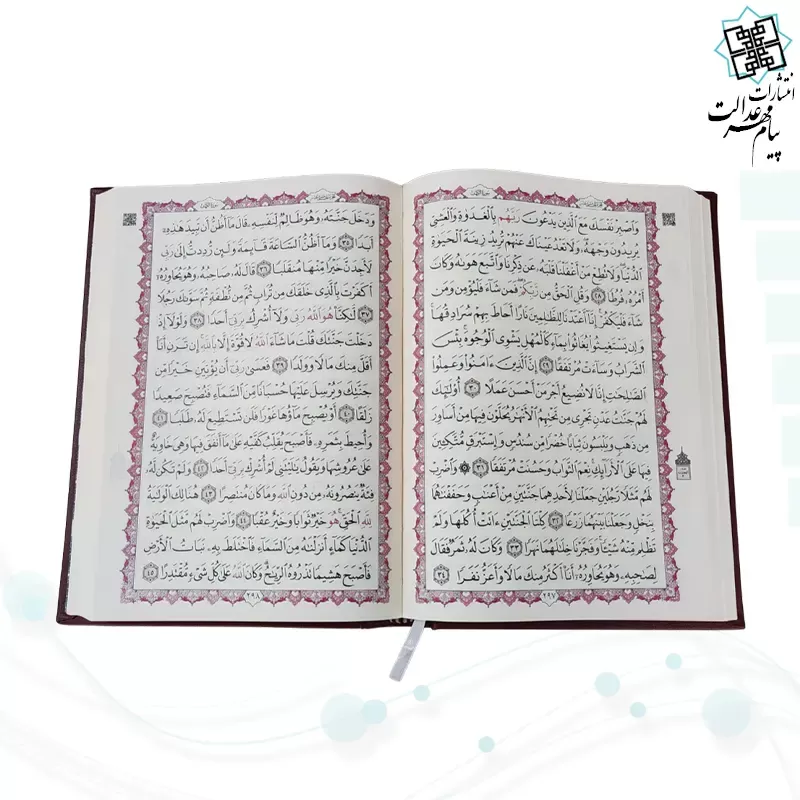 انتشارات
پیام مهر عدالت
وَاصْبِرْ نَفْسَكَ مَعَ الَّذِينَ يَدْعُونَ رَبَّهُم بِالْغَدَوٰةِ وَالْعَشِيِّ
يُرِيدُونَ وَجْهَهُۥ وَلَا تَعْدُ عَيْنَاكَ عَنْهُمْ تُرِيدُ زِينَةَ الْحَيَوٰةِ
الدُّنْيَا وَلَا تُطِعْ مَنْ أَغْفَلْنَا قَلْبَهُۥ عَن ذِكْرِنَا وَاتَّبَعَ هَوَىٰهُ وَكَانَ
أَمْرُهُۥ فُرُطًا ﴿٢٨﴾ وَقُلِ الْحَقُّ مِن رَّبِّكُمْ فَمَن شَاءَ فَلْيُؤْمِن وَمَن
شَاءَ فَلْيَكْفُرْ إِنَّا أَعْتَدْنَا لِلظَّالِمِينَ نَارًا أَحَاطَ بِهِمْ سُرَادِقُهَا
وَإِن يَسْتَغِيثُوا يُغَاثُوا بِمَاءٍ كَالْمُهْلِ يَشْوِي الْوُجُوهَ بِئْسَ
الشَّرَابُ وَسَاءَتْ مُرْتَفَقًا ﴿٢٩﴾ إِنَّ الَّذِينَ ءَامَنُوا وَعَمِلُوا
الصَّالِحَاتِ إِنَّا لَا نُضِيعُ أَجْرَ مَنْ أَحْسَنَ عَمَلًا ﴿٣٠﴾ أُولَٰئِكَ
لَهُمْ جَنَّاتُ عَدْنٍ تَجْرِي مِن تَحْتِهِمُ الْأَنْهَارُ يُحَلَّوْنَ فِيهَا مِنْ أَسَاوِرَ
مِن ذَهَبٍ وَيَلْبَسُونَ ثِيَابًا خُضْرًا مِّن سُندُسٍ وَإِسْتَبْرَقٍ مُّتَّكِئِينَ
فِيهَا عَلَى الْأَرَائِكِ نِعْمَ الثَّوَابُ وَحَسُنَتْ مُرْتَفَقًا ﴿٣١﴾ وَاضْرِبْ
لَهُم مَّثَلًا رَّجُلَيْنِ جَعَلْنَا لِأَحَدِهِمَا جَنَّتَيْنِ مِنْ أَعْنَابٍ وَحَفَفْنَاهُمَا
بِنَخْلٍ وَجَعَلْنَا بَيْنَهُمَا زَرْعًا ﴿٣٢﴾ كِلْتَا الْجَنَّتَيْنِ ءَاتَتْ أُكُلَهَا وَلَمْ
تَظْلِم مِّنْهُ شَيْئًا وَفَجَّرْنَا خِلَالَهُمَا نَهَرًا ﴿٣٣﴾ وَكَانَ لَهُۥ ثَمَرٌ فَقَالَ
لِصَاحِبِهِۦ وَهُوَ يُحَاوِرُهُۥ أَنَا أَكْثَرُ مِنكَ مَالًا وَأَعَزُّ نَفَرًا ﴿٣٤﴾
٢٩٧
وَدَخَلَ جَنَّتَهُۥ وَهُوَ ظَالِمٌ لِّنَفْسِهِۦ قَالَ مَا أَظُنُّ أَن تَبِيدَ هَٰذِهِۦ
أَبَدًا ﴿٣٥﴾ وَمَا أَظُنُّ السَّاعَةَ قَائِمَةً وَلَئِن رُّدِدتُّ إِلَىٰ رَبِّي
لَأَجِدَنَّ خَيْرًا مِّنْهَا مُنقَلَبًا ﴿٣٦﴾ قَالَ لَهُۥ صَاحِبُهُۥ وَهُوَ يُحَاوِرُهُۥ
أَكَفَرْتَ بِالَّذِي خَلَقَكَ مِن تُرَابٍ ثُمَّ مِن نُّطْفَةٍ ثُمَّ سَوَّىٰكَ رَجُلًا
﴿٣٧﴾ لَّٰكِنَّا هُوَ اللَّهُ رَبِّي وَلَا أُشْرِكُ بِرَبِّي أَحَدًا ﴿٣٨﴾ وَلَوْلَا إِذْ
دَخَلْتَ جَنَّتَكَ قُلْتَ مَا شَاءَ اللَّهُ لَا قُوَّةَ إِلَّا بِاللَّهِ إِن تَرَنِ أَنَا
أَقَلَّ مِنكَ مَالًا وَوَلَدًا ﴿٣٩﴾ فَعَسَىٰ رَبِّي أَن يُؤْتِيَنِ خَيْرًا مِّن
جَنَّتِكَ وَيُرْسِلَ عَلَيْهَا حُسْبَانًا مِّنَ السَّمَاءِ فَتُصْبِحَ صَعِيدًا
زَلَقًا ﴿٤٠﴾ أَوْ يُصْبِحَ مَاؤُهَا غَوْرًا فَلَن تَسْتَطِيعَ لَهُۥ طَلَبًا ﴿٤١﴾
وَأُحِيطَ بِثَمَرِهِۦ فَأَصْبَحَ يُقَلِّبُ كَفَّيْهِ عَلَىٰ مَا أَنفَقَ فِيهَا وَهِيَ خَاوِيَةٌ
عَلَىٰ عُرُوشِهَا وَيَقُولُ يَالَيْتَنِي لَمْ أُشْرِكْ بِرَبِّي أَحَدًا ﴿٤٢﴾ وَلَمْ تَكُن لَّهُۥ
فِئَةٌ يَنصُرُونَهُۥ مِن دُونِ اللَّهِ وَمَا كَانَ مُنتَصِرًا ﴿٤٣﴾ هُنَالِكَ الْوَلَايَةُ
لِلَّهِ الْحَقِّ هُوَ خَيْرٌ ثَوَابًا وَخَيْرٌ عُقْبًا ﴿٤٤﴾ وَاضْرِبْ لَهُم مَّثَلَ الْحَيَوٰةِ
الدُّنْيَا كَمَاءٍ أَنزَلْنَاهُ مِنَ السَّمَاءِ فَاخْتَلَطَ بِهِۦ نَبَاتُ الْأَرْضِ
فَأَصْبَحَ هَشِيمًا تَذْرُوهُ الرِّيَاحُ وَكَانَ اللَّهُ عَلَىٰ كُلِّ شَيْءٍ مُّقْتَدِرًا ﴿٤٥﴾
٢٩٨